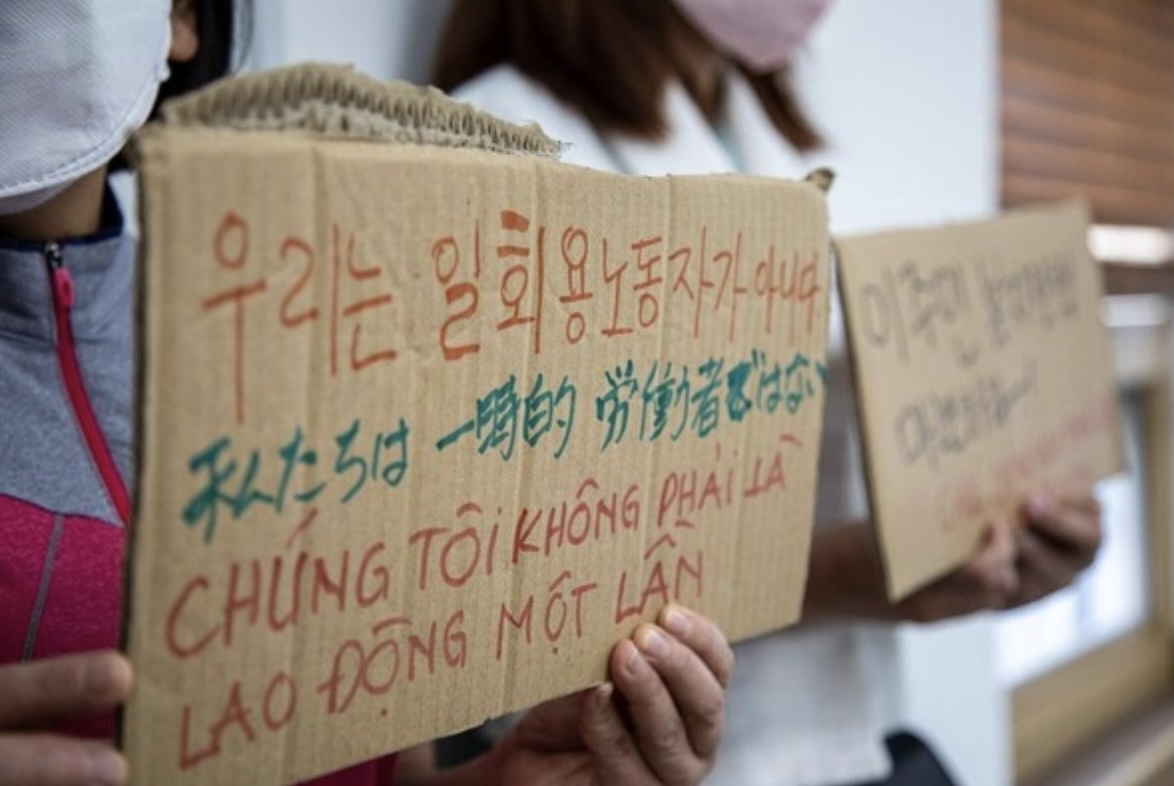 우리는 일회용노동자가아니다
私たちは 一時的 労働者ではない
CHÚNG TÔI KHÔNG PHẢI LÀ
LAO ĐỘNG MỘT LẦN
이주민